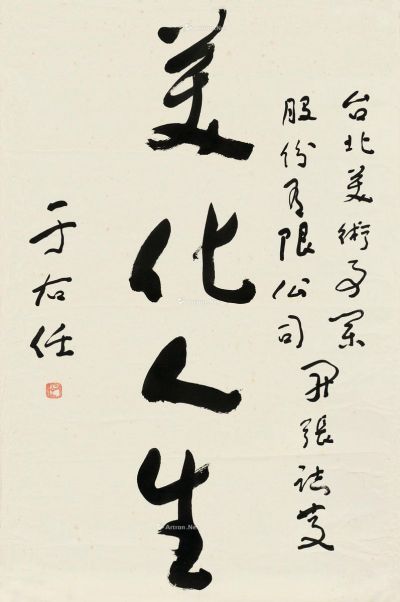 台北美術事業
股份有限公司
開張誌慶
美化人生
于右任
Artron.Net